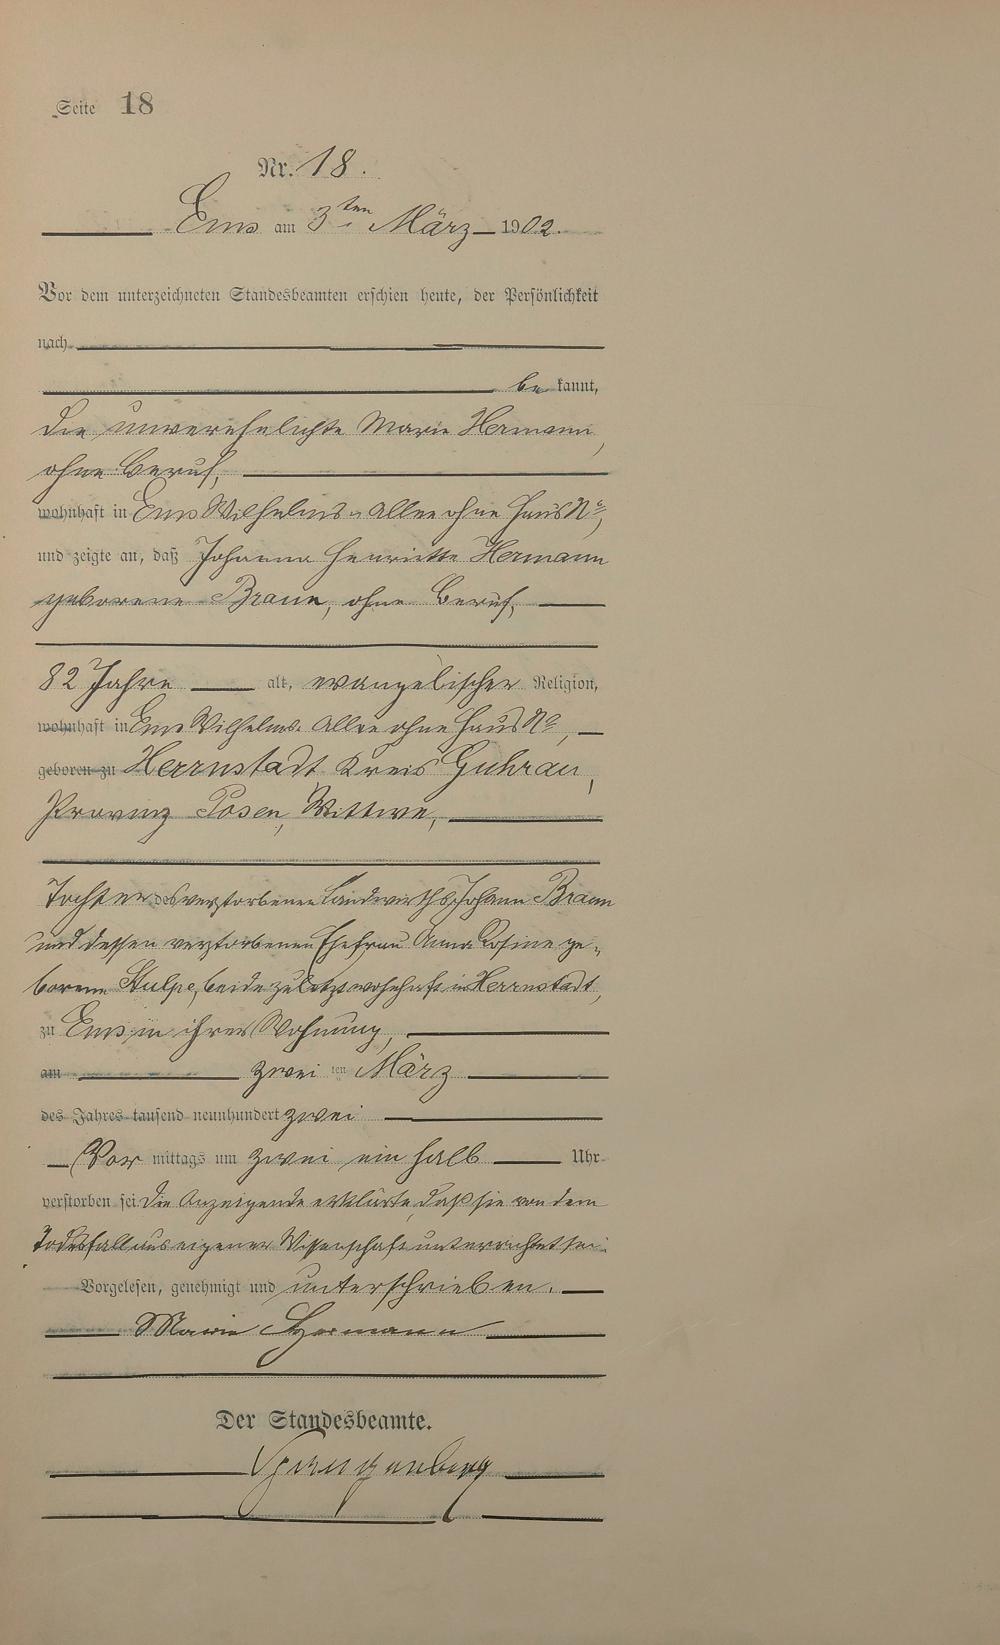 Seite 18
Nr. 18.
Ems am 3ten März 1902.
Vor dem unterzeichneten Standesbeamten erschien heute, der Persönlichkeit
nach
bekannt,
die unverehelichte Marie Hermann,
ohne Beruf,
wohnhaft in Ems Wilhelms-Allee ohne Haus No,
und zeigte an, daß Johanna Henriette Hermann
geborene Braun, ohne Beruf,
82 Jahre alt, evangelischer Religion,
wohnhaft in Ems Wilhelms-Allee ohne Haus No,
geboren zu Herrnstadt Kreis Guhrau,
Provinz Posen, Wittwe,
Tochter des verstorbenen Landwirths Johann Braun
und dessen verstorbenen Ehefrau Anna Rosine ge-
borene Stulpe, beide zuletzt wohnhaft in Herrnstadt,
zu Ems in ihrer Wohnung,
am zweiten März
des Jahres tausend neunhundert zwei
Vormittags um zwei ein halb Uhr
verstorben sei. Die Anzeigende erklärte, daß sie von dem
Todesfall aus eigener Wissenschaft unterrichtet sei.
Vorgelesen, genehmigt und unterschrieben.
Marie Hermann
Der Standesbeamte.